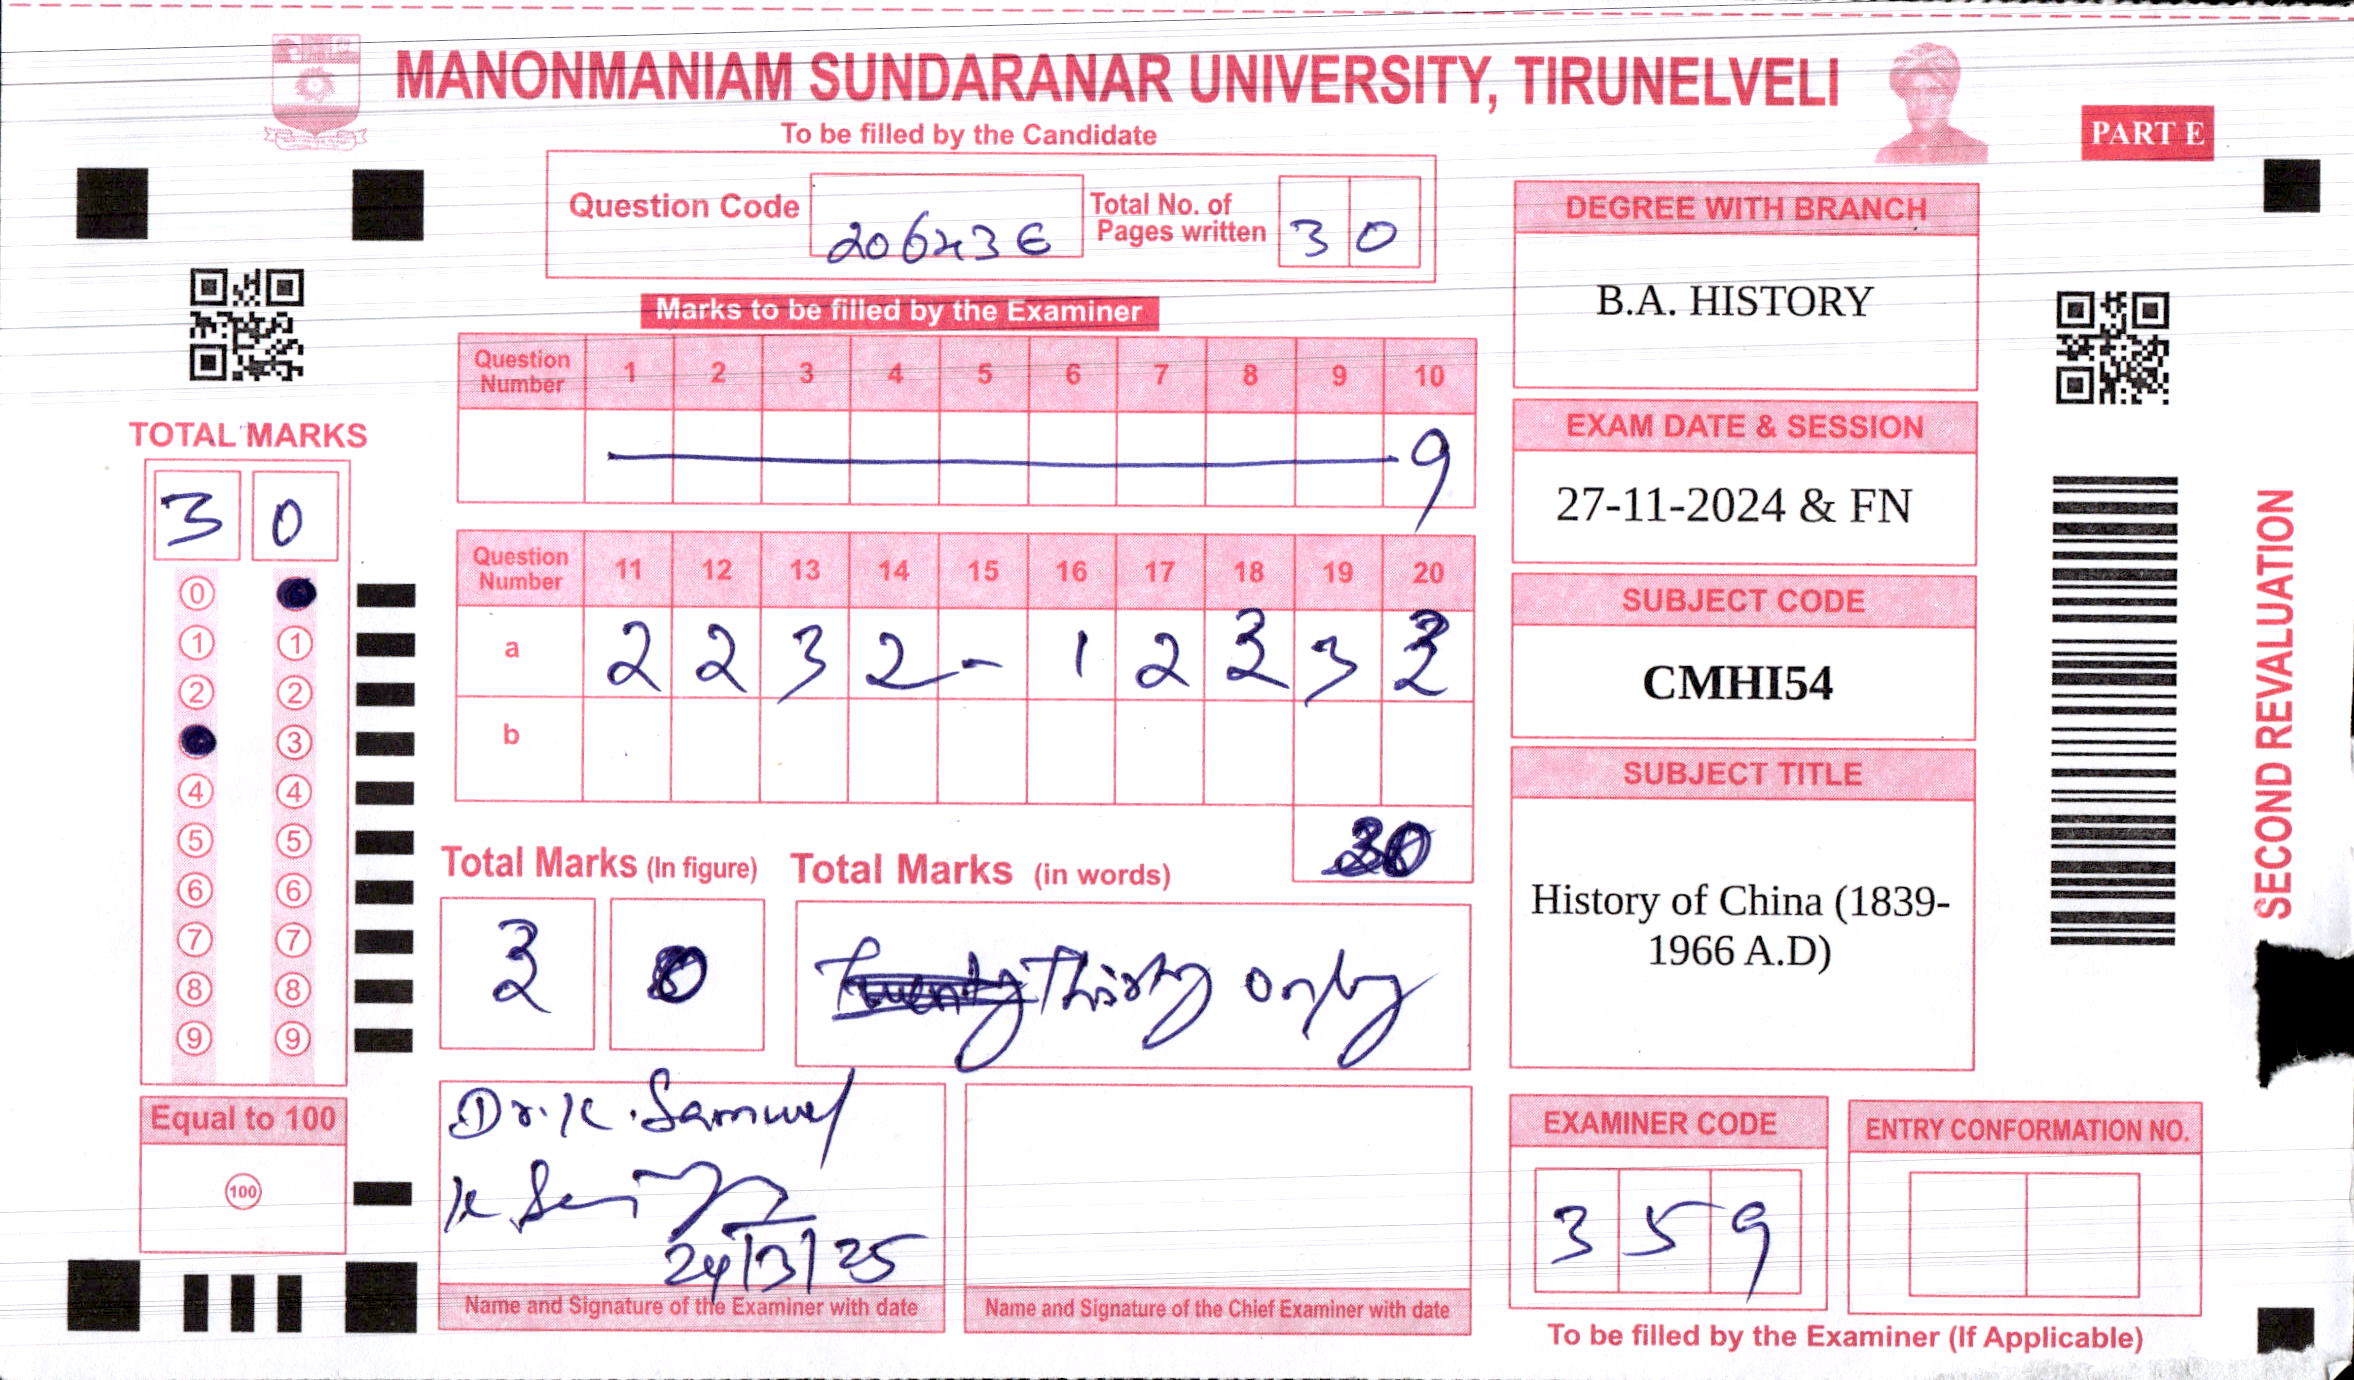 MANONMANIAM SUNDARANAR UNIVERSITY, TIRUNELVELI
PART E
To be filled by the Candidate
Question Code
Total No. of Pages written 3 0
Marks to be filled by the Examiner
Question Number 1 2 3 4 5 6 7 8 9 10
9
Question Number 11 12 13 14 15 16 17 18 19 20
a 2 2 3 2 - 1 2 3 3
b
30
TOTAL MARKS
3 0
0
1 1
2 2
3
4 4
5 5
6 6
7 7
8 8
9 9
Equal to 100
100
Total Marks (In figure) Total Marks (in words)
3 0 Thirty only
Dr. K. Samuel
24/3/25
Name and Signature of the Examiner with date
Name and Signature of the Chief Examiner with date
DEGREE WITH BRANCH
B.A. HISTORY
EXAM DATE & SESSION
27-11-2024 & FN
SUBJECT CODE
CMHI54
SUBJECT TITLE
History of China (1839-
1966 A.D)
EXAMINER CODE
3 5 9
ENTRY CONFORMATION NO.
To be filled by the Examiner (If Applicable)
SECOND REVALUATION